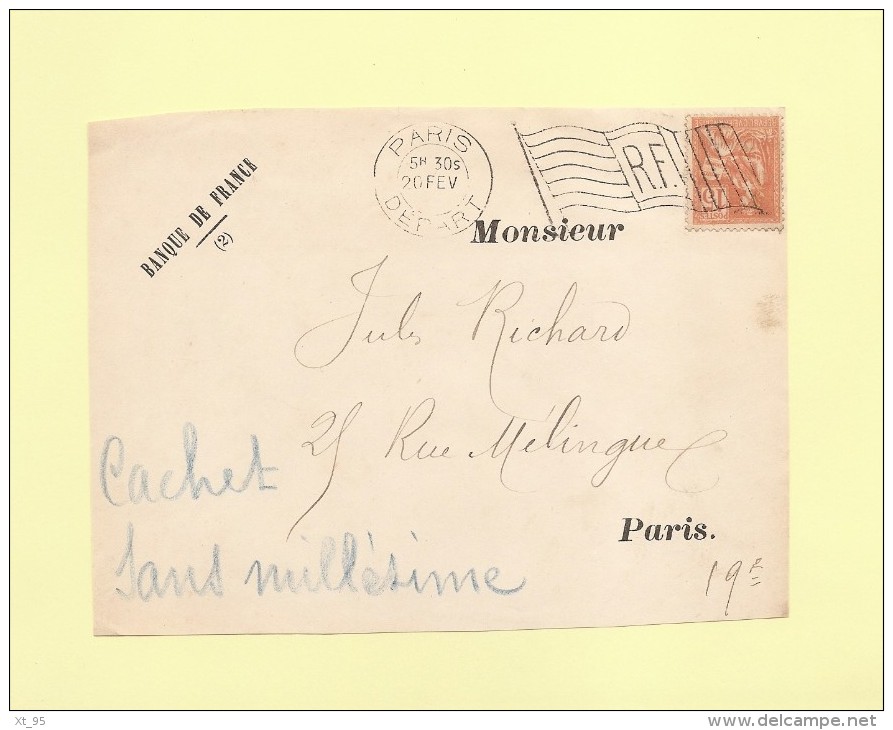 BANQUE DE FRANCE
(2)
PARIS
5H 30S
20 FEV
DEPART
R.F.
15
POSTES
Monsieur
Jules Richard
25 Rue Mélingue
Paris.
19E
Cachet
Sans millésime
Xt_95
www.delcampe.net